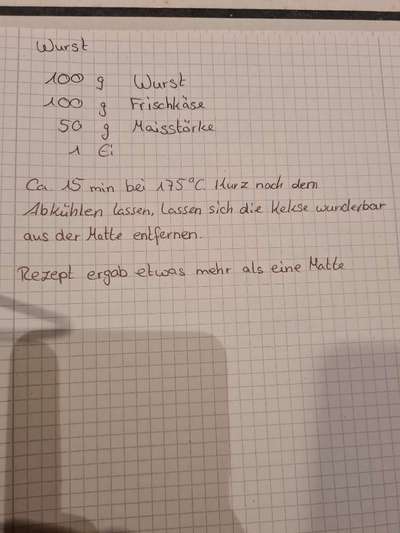 Wurst
100 g Wurst
100 g Frischkäse
50 g Maisstärke
1 Ei
Ca 15 min bei 175°C. Kurz nach dem
Abkühlen lassen, lassen sich die Kekse wunderbar
aus der Matte entfernen.
Rezept ergab etwas mehr als eine Matte